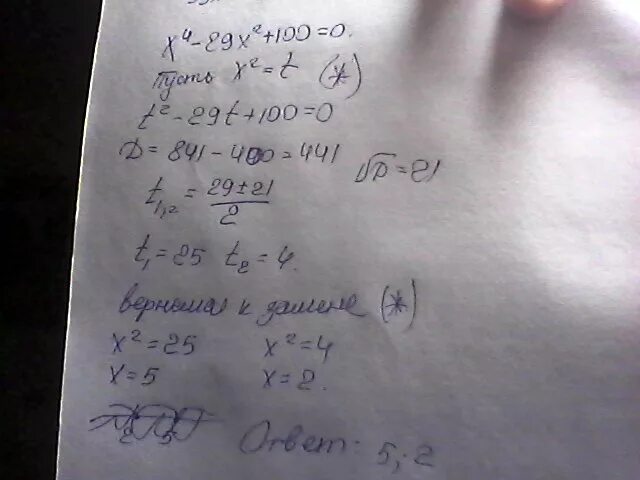 x⁴-29x²+100=0.
Пусть x²=t (*)
t²-29t+100=0
D=841-400=441 √D=21
t₁,₂=(29±21)/2
t₁=25 t₂=4.
вернемся к замене (*)
x²=25 x²=4
x=5 x=2.
Ответ: 5; 2